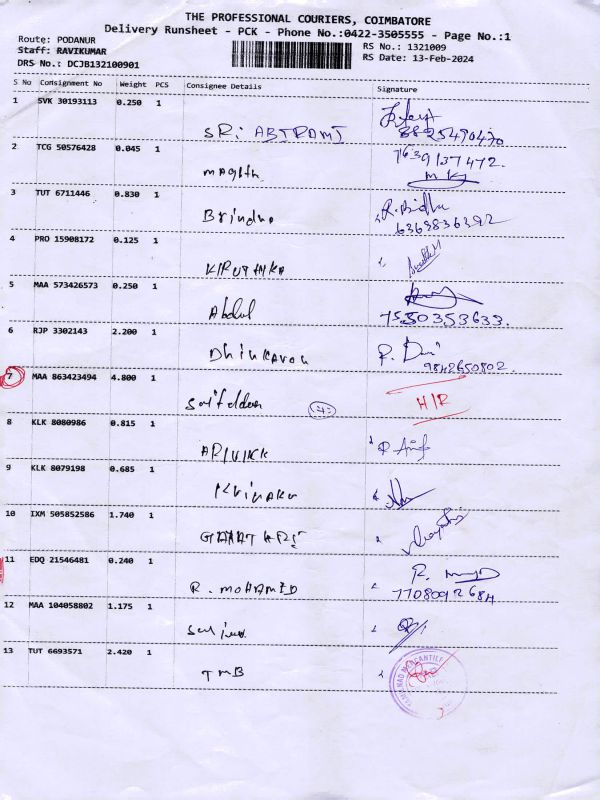 THE PROFESSIONAL COURIERS, COIMBATORE
Delivery Runsheet - PCK - Phone No.:0422-3505555 - Page No.:1
Route: PODANUR RS No.: 1321009
Staff: RAVIKUMAR RS Date: 13-Feb-2024
DRS No.: DCJB132100901
S No Consignment No Weight PCS Consignee Details Signature
1 SVK 30193113 0.250 1
SRi ABIRAMI 8825490470
2 TCG 50576428 0.045 1 7639137472.
3 TUT 6711446 0.830 1
Brindha 6363836392
4 PRO 15908172 0.125 1
KIRUTHIKA
5 MAA 573426573 0.250 1
Abdul 7550353633.
6 RJP 3302143 2.200 1
9842650802.
7 MAA 863423494 4.800 1
H/R
8 KLK 8080986 0.815 1
9 KLK 8079198 0.685 1
10 IXM 505852586 1.740 1
11 EDQ 21546481 0.240 1
R. MOHAMED
12 MAA 104058802 1.175 1
13 TUT 6693571 2.420 1
TMB